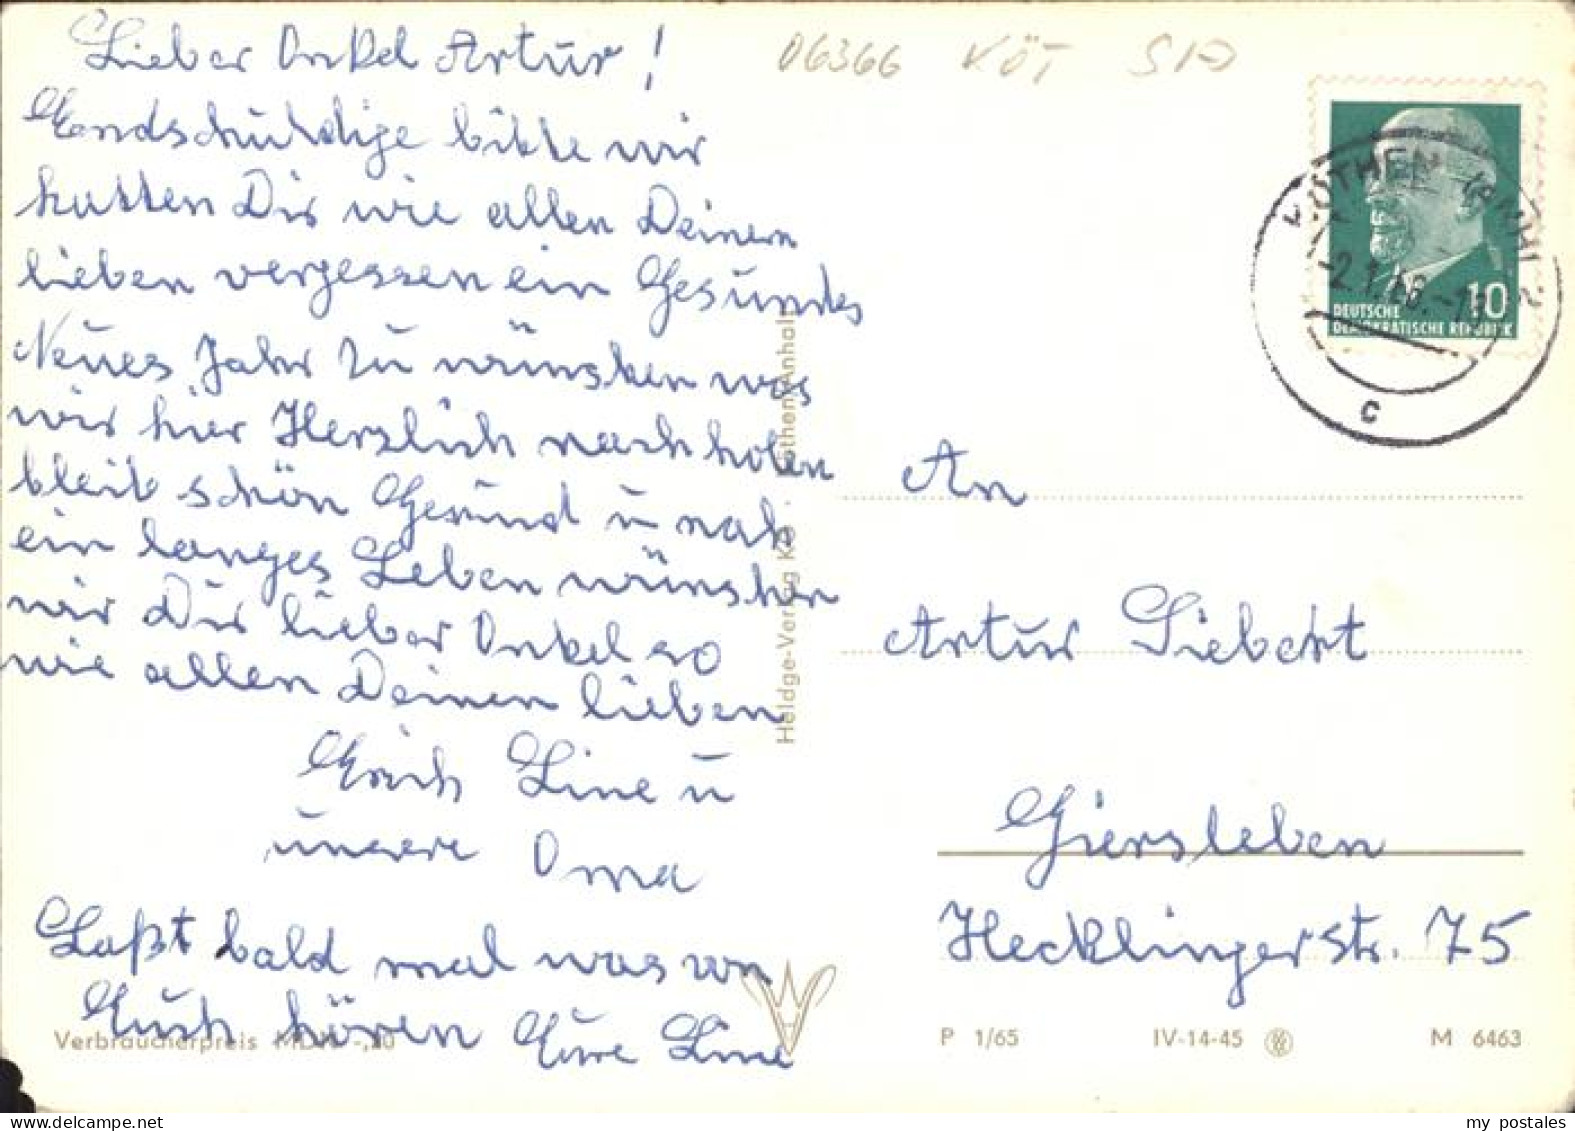 Lieber Onkel Artur!
Endschuldige bitte wir
hatten Dir wie allen Deinen
lieben vergessen ein Gesundes
Neues Jahr zu wünschen was
wir hier Herzlich nachholen
bleib schön Gesund u noh
ein langes Leben wünschen
wir Dir lieber Onkel so
wie allen Deinen lieben
Erich Line u
unsere Oma
Laßt bald mal was von
Euch hören Eure Line
Verbraucherpreis MDN -,20
Heldge-Verlag KG · Köthen/Anhalt
06366 KÖT SA
KÖTHEN (ANH) 2
-2.1.66.-1
c
10
DEUTSCHE
DEMOKRATISCHE REPUBLIK
An
Artur Siebert
Giersleben
Hecklingerstr. 75
P 1/65 IV-14-45 M 6463
my postales